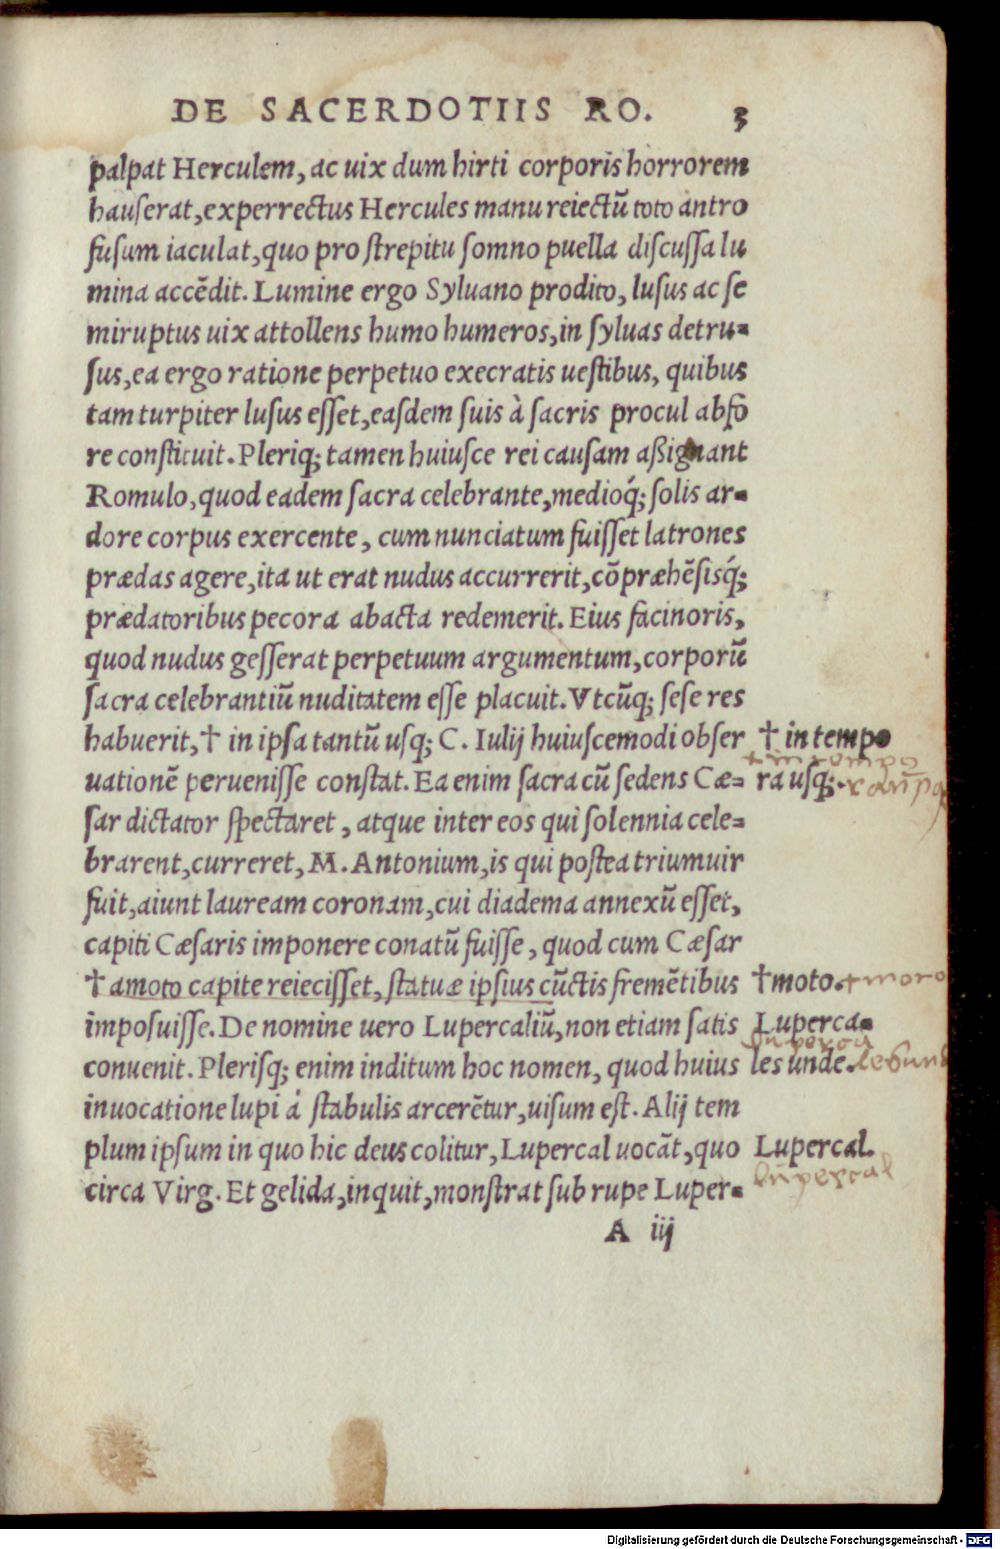 DE SACERDOTIIS RO. 3
palpat Herculem, ac uix dum hirti corporis horrorem
hauſerat, experrectus Hercules manu reiectũ toto antro
fuſum iaculat, quo pro ſtrepitu ſomno puella diſcuſſa lu
mina accẽdit. Lumine ergo Syluano prodito, luſus ac ſe
miruptus uix attollens humo humeros, in ſyluas detru-
ſus, ea ergo ratione perpetuo execratis ueſtibus, quibus
tam turpiter luſus eſſet, eaſdem ſuis à ſacris procul abfo
re conſtituit. Pleriq; tamen huiuſce rei cauſam aßignant
Romulo, quod eadem ſacra celebrante, medioq́; ſolis ar-
dore corpus exercente, cum nunciatum fuiſſet latrones
prædas agere, ita ut erat nudus accurrerit, cõpræhẽſisq́;
prædatoribus pecora abacta redemerit. Eius facinoris,
quod nudus geſſerat perpetuum argumentum, corporũ
ſacra celebrantiũ nuditatem eſſe placuit. Vtcũq; ſeſe res
habuerit, † in ipſa tantũ uſq; C. Iulij huiuſcemodi obſer † in tempo
uationẽ perueniſſe conſtat. Ea enim ſacra cũ ſedens Cæ- ra uſq;.
ſar dictator ſpectaret, atque inter eos qui ſolennia cele-
brarent, curreret, M. Antonium, is qui poſtea triumuir
fuit, aiunt lauream coronam, cui diadema annexũ eſſet,
capiti Cæſaris imponere conatũ fuiſſe, quod cum Cæſar
† amoto capite reieciſſet, ſtatuæ ipſius cũctis fremẽtibus †moto. +moto
impoſuiſſe. De nomine uero Lupercaliũ, non etiam ſatis Luperca-
conuenit. Plerisq; enim inditum hoc nomen, quod huius les unde.
inuocatione lupi á ſtabulis arcerẽtur, uiſum eſt. Alij tem
plum ipſum in quo hic deus colitur, Lupercal uocãt, quo Lupercal.
circa Virg. Et gelida, inquit, monſtrat ſub rupe Luper- lupercal
A iij
Digitalisierung gefördert durch die Deutsche Forschungsgemeinschaft - DFG